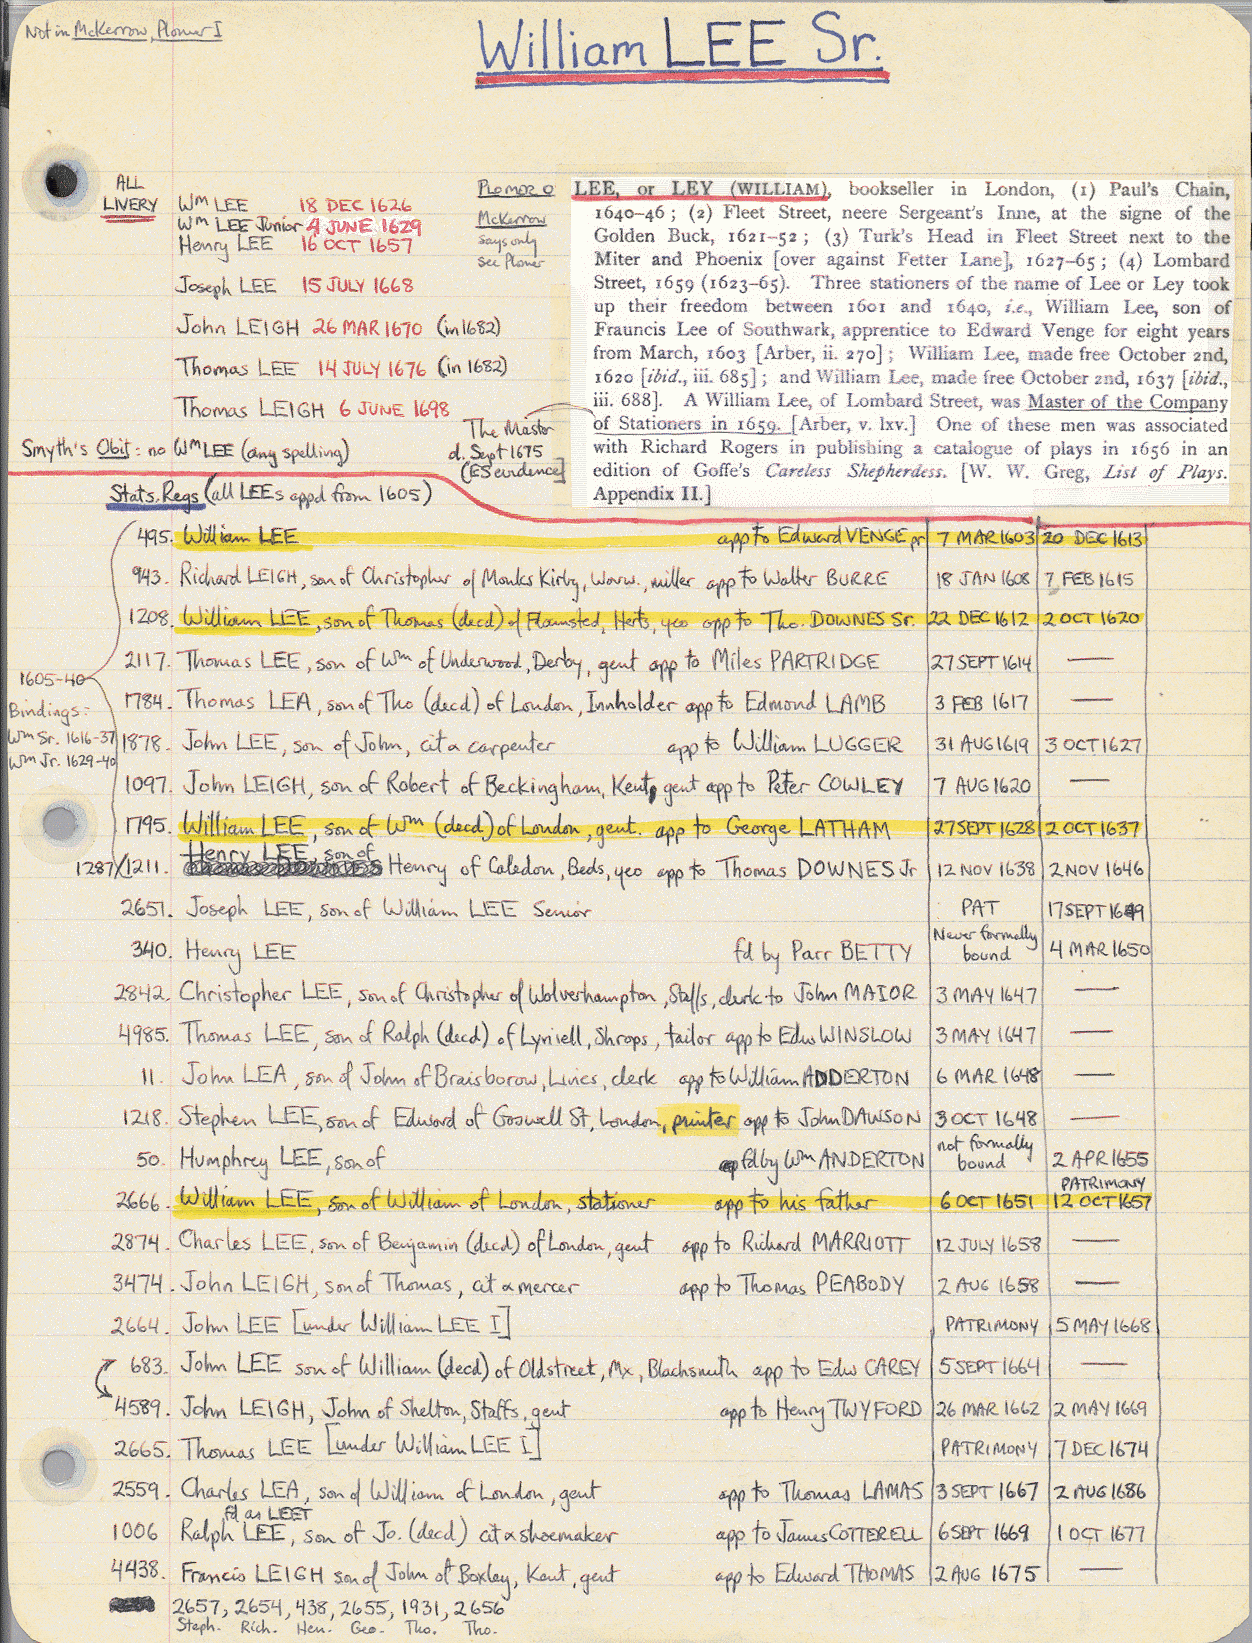 Not in McKerrow, Plomer I
William LEE Sr.
ALL
LIVERY
Wm LEE 18 DEC 1626
Wm LEE Junior 4 JUNE 1629
Henry LEE 16 OCT 1657
Joseph LEE 15 JULY 1668
John LEIGH 26 MAR 1670 (in 1682)
Thomas LEE 14 JULY 1676 (in 1682)
Thomas LEIGH 6 JUNE 1698
Smyth's Obit: no Wm LEE (any spelling)
Plomer
McKerrow
says only
see Plomer
The Master
d. Sept 1675
(ES evidence]
LEE, or LEY (WILLIAM), bookseller in London, (1) Paul's Chain,
1640–46; (2) Fleet Street, neere Sergeant's Inne, at the signe of the
Golden Buck, 1621–52; (3) Turk's Head in Fleet Street next to the
Miter and Phoenix [over against Fetter Lane], 1627–65; (4) Lombard
Street, 1659 (1623–65). Three stationers of the name of Lee or Ley took
up their freedom between 1601 and 1640, i.e., William Lee, son of
Frauncis Lee of Southwark, apprentice to Edward Venge for eight years
from March, 1603 [Arber, ii. 270]; William Lee, made free October 2nd,
1620 [ibid., iii. 685]; and William Lee, made free October 2nd, 1637 [ibid.,
iii. 688]. A William Lee, of Lombard Street, was Master of the Company
of Stationers in 1659. [Arber, v. lxv.] One of these men was associated
with Richard Rogers in publishing a catalogue of plays in 1656 in an
edition of Goffe's Careless Shepherdess. [W. W. Greg, List of Plays.
Appendix II.]
Stats. Regs (all LEEs appd from 1605)
1605-40
Bindings:
Wm Sr. 1616-37
Wm Jr. 1629-40
495. William LEE app to Edward VENGE pr 7 MAR 1603 20 DEC 1613
943. Richard LEIGH, son of Christopher of Monks Kirby, Warw., miller app to Walter BURRE 18 JAN 1608 7 FEB 1615
1208. William LEE, son of Thomas (decd) of Flamsted, Herts, yeo app to Tho. DOWNES Sr. 22 DEC 1612 2 OCT 1620
2117. Thomas LEE, son of Wm of Underwood, Derby, gent app to Miles PARTRIDGE 27 SEPT 1614 —
1784. Thomas LEA, son of Tho (decd) of London, Innholder app to Edmond LAMB 3 FEB 1617 —
1878. John LEE, son of John, cit & carpenter app to William LUGGER 31 AUG 1619 3 OCT 1627
1097. John LEIGH, son of Robert of Beckingham, Kent, gent app to Peter COWLEY 7 AUG 1620 —
1795. William LEE, son of Wm (decd) of London, gent. app to George LATHAM 27 SEPT 1628 2 OCT 1637
1287/1211. Henry LEE, son of Henry of Caledon, Beds, yeo app to Thomas DOWNES Jr 12 NOV 1638 2 NOV 1646
2651. Joseph LEE, son of William LEE Senior PAT 17 SEPT 1649
340. Henry LEE fd by Parr BETTY Never formally bound 4 MAR 1650
2842. Christopher LEE, son of Christopher of Wolverhampton, Staffs, clerk to John MAIOR 3 MAY 1647 —
4985. Thomas LEE, son of Ralph (decd) of Lyniell, Shrops, tailor app to Edw WINSLOW 3 MAY 1647 —
11. John LEA, son of John of Braisborow, Lincs, clerk app to William ADDERTON 6 MAR 1648 —
1218. Stephen LEE, son of Edward of Goswell St, London, printer app to John DAWSON 3 OCT 1648 —
50. Humphrey LEE, son of fd by Wm ANDERTON not formally bound 2 APR 1655
2666. William LEE, son of William of London, stationer app to his father 6 OCT 1651 PATRIMONY 12 OCT 1657
2874. Charles LEE, son of Benjamin (decd) of London, gent app to Richard MARRIOTT 12 JULY 1658 —
3474. John LEIGH, son of Thomas, cit & mercer app to Thomas PEABODY 2 AUG 1658 —
2664. John LEE [under William LEE I] PATRIMONY 5 MAY 1668
683. John LEE son of William (decd) of Oldstreet, Mx, Blacksmith app to Edw CAREY 5 SEPT 1664 —
4589. John LEIGH, John of Shelton, Staffs, gent app to Henry TWYFORD 26 MAR 1662 2 MAY 1669
2665. Thomas LEE [under William LEE I] PATRIMONY 7 DEC 1674
2559. Charles LEA, son of William of London, gent app to Thomas LAMAS 3 SEPT 1667 2 AUG 1686
fd as LEET
1006 Ralph LEE, son of Jo. (decd) cit & shoemaker app to James COTTERELL 6 SEPT 1669 1 OCT 1677
4438. Francis LEIGH son of John of Boxley, Kent, gent app to Edward THOMAS 2 AUG 1675 —
2657, 2654, 438, 2655, 1931, 2656
Steph. Rich. Hen. Geo. Tho. Tho.